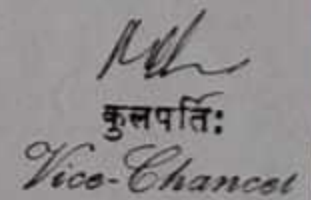 कुलपर्ति:
Vice-Chancel